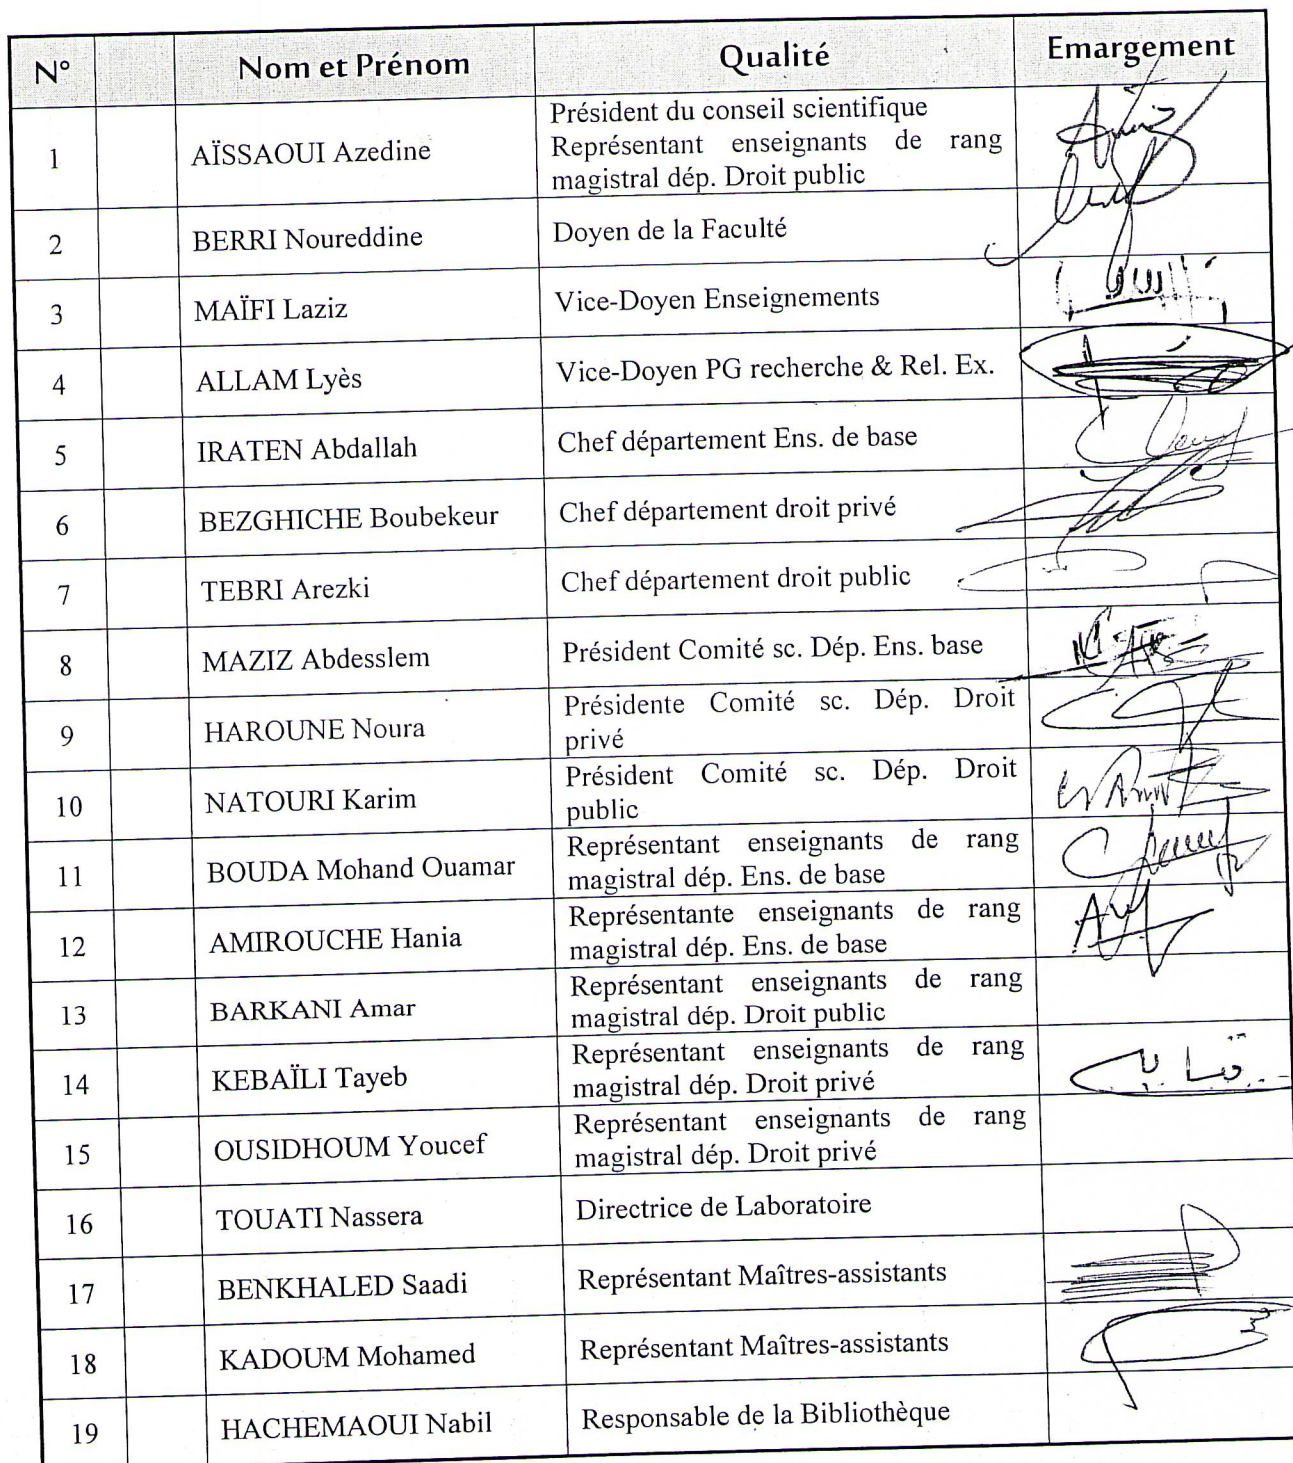 N° Nom et Prénom Qualité Emargement
1 AÏSSAOUI Azedine Président du conseil scientifique
Représentant enseignants de rang
magistral dép. Droit public
2 BERRI Noureddine Doyen de la Faculté
3 MAÏFI Laziz Vice-Doyen Enseignements
4 ALLAM Lyès Vice-Doyen PG recherche & Rel. Ex.
5 IRATEN Abdallah Chef département Ens. de base
6 BEZGHICHE Boubekeur Chef département droit privé
7 TEBRI Arezki Chef département droit public
8 MAZIZ Abdesslem Président Comité sc. Dép. Ens. base
9 HAROUNE Noura Présidente Comité sc. Dép. Droit
privé
10 NATOURI Karim Président Comité sc. Dép. Droit
public
11 BOUDA Mohand Ouamar Représentant enseignants de rang
magistral dép. Ens. de base
12 AMIROUCHE Hania Représentante enseignants de rang
magistral dép. Ens. de base
13 BARKANI Amar Représentant enseignants de rang
magistral dép. Droit public
14 KEBAÏLI Tayeb Représentant enseignants de rang
magistral dép. Droit privé
15 OUSIDHOUM Youcef Représentant enseignants de rang
magistral dép. Droit privé
16 TOUATI Nassera Directrice de Laboratoire
17 BENKHALED Saadi Représentant Maîtres-assistants
18 KADOUM Mohamed Représentant Maîtres-assistants
19 HACHEMAOUI Nabil Responsable de la Bibliothèque